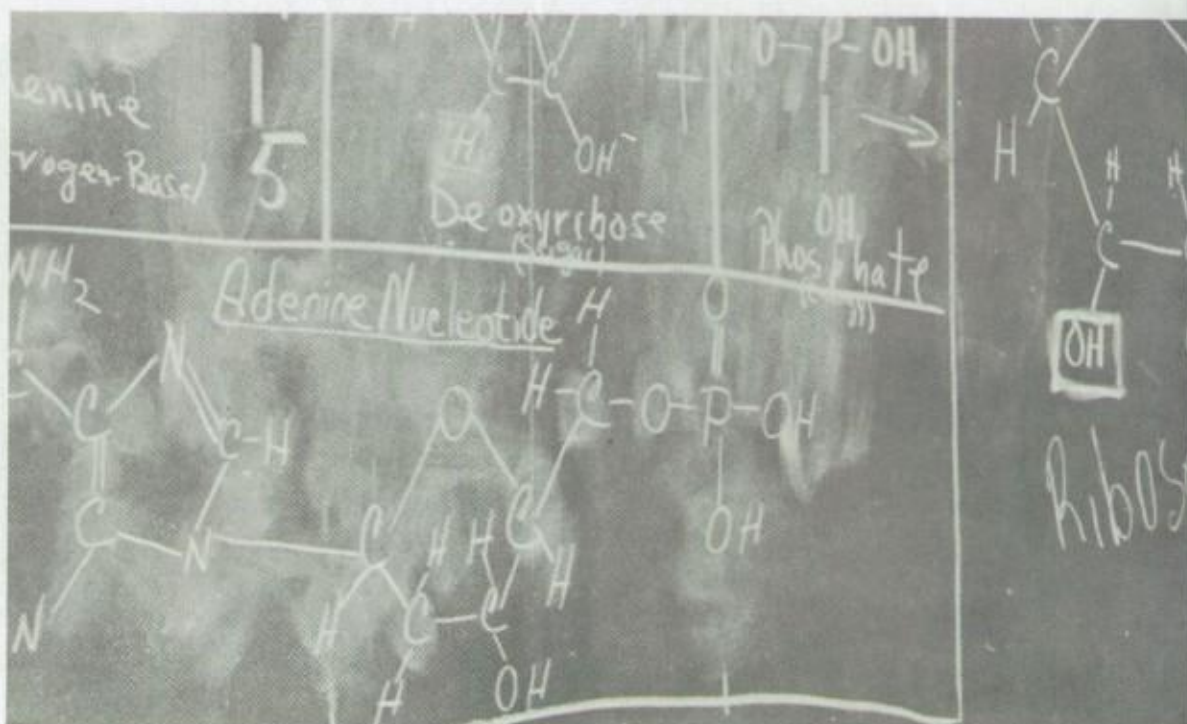 enine
rogen Base
1
5
H
C C
H
OH
Deoxyribose
(Sugar)
+
O-P-OH
OH
Phosphate
C
H
H
H
C
OH
Ribos
NH2
Adenine Nucleotide
H
N
O
H-C-O-P-OH
O
C
C-H
C
N
C
C
H
H
OH
H
N
H
C-C
H
OH